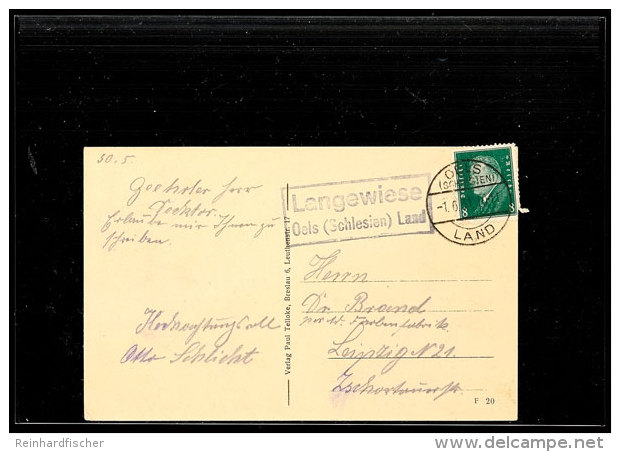 30.5.
Geehrter Herr
Doktor.
Erlaube mir Ihnen zu
schreiben.
Hochachtungsvoll
Otto Schlicht
Verlag Paul Telloke, Breslau 6, Leuthenstr. 17
Langewiese
Oels (Schlesien) Land
OELS
(SCHLESIEN)
-1.6.
LAND
8 8
Herrn
Dr. Brand
Farbenfabrik
Leipzig N 21.
F 20
Reinhardfischer
delcampe.net